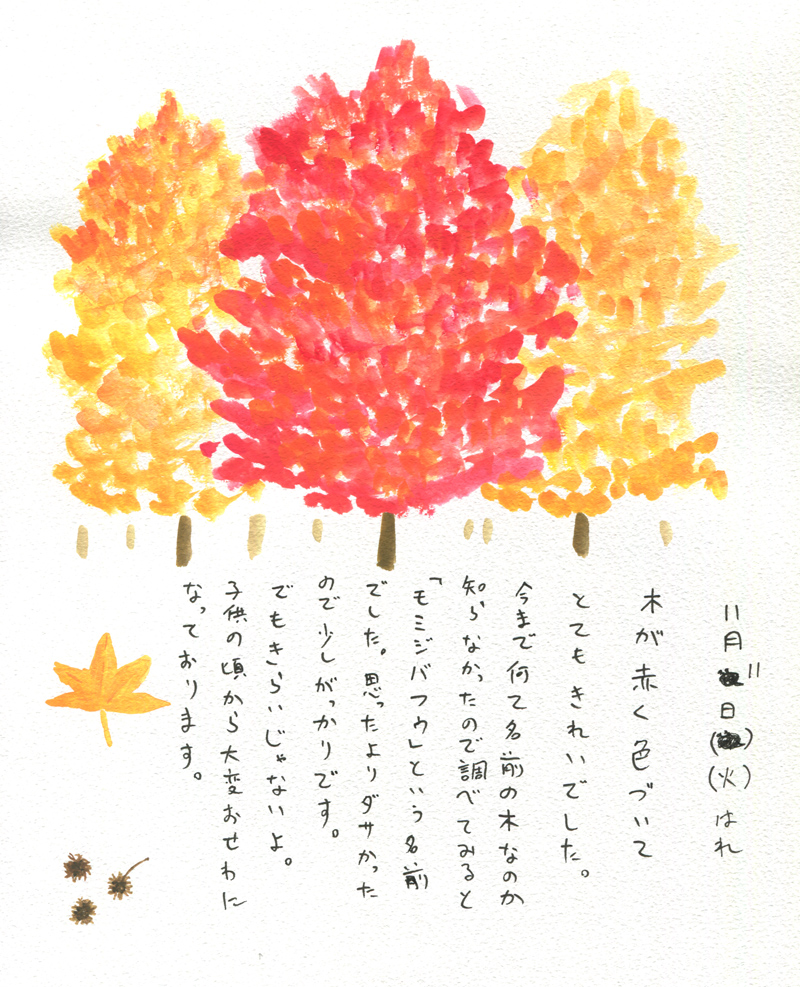 11月11日(火)はれ
木が赤く色づいて
とてもきれいでした。
今まで何て名前の木なのか
知らなかったので調べてみると
「モミジバフウ」という名前
でした。思ったよりダサかった
ので少しがっかりです。
でもきらいじゃないよ。
子供の頃から大変おせわに
なっております。